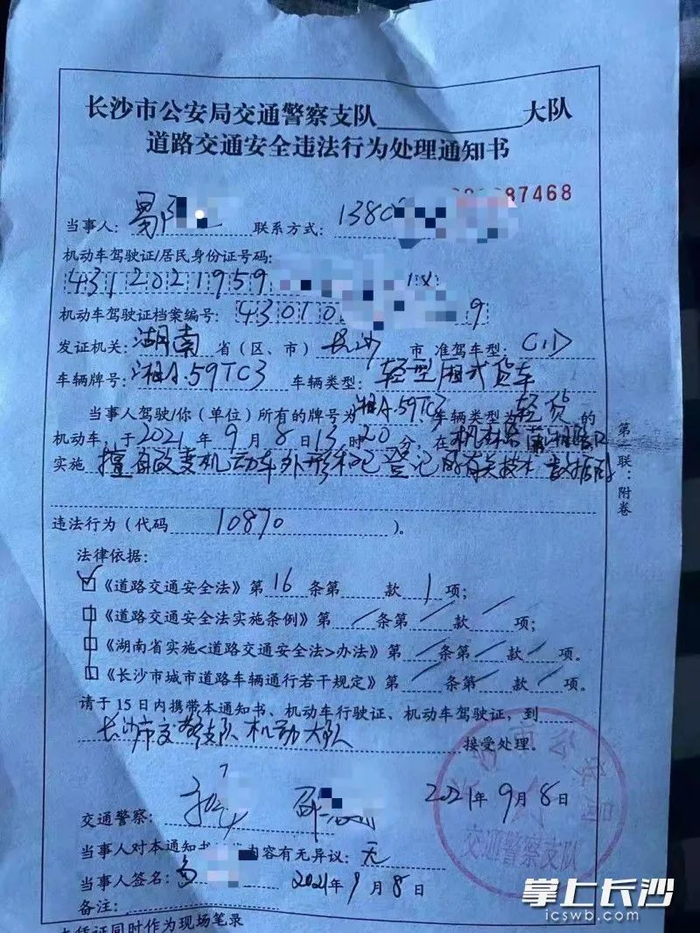 长沙市公安局交通警察支队 大队
道路交通安全违法行为处理通知书
87468
当事人： 联系方式：1380
机动车驾驶证/居民身份证号码：
4312021959 1X
机动车驾驶证档案编号：43010 9
发证机关：湖南省（区、市）长沙市 准驾车型：C1D
车辆牌号：湘A.59TC3 车辆类型：轻型厢式货车
当事人驾驶/你（单位）所有的牌号为湘A.59TC3车辆类型为轻货的
机动车，于2021年9月8日13时20分，在
实施擅自改变机动车外形和已登记的有关技术数据的
违法行为（代码10870）。
法律依据：
☑《道路交通安全法》第16条第 款1项；
□《道路交通安全法实施条例》第／条第／款／项；
□《湖南省实施<道路交通安全法>办法》第／条第／款／项。
□《长沙市城市道路车辆通行若干规定》第／条第／款／项。
请于15日内携带本通知书、机动车行驶证、机动车驾驶证，到
长沙市交警支队机动大队接受处理。
交通警察： 2021年9月8日
交通警察支队
当事人对本通知书 内容有无异议：无
当事人签名： 2021年9月8日
备注：
本凭证同时作为现场笔录
联：附卷
掌上长沙
icswb.com